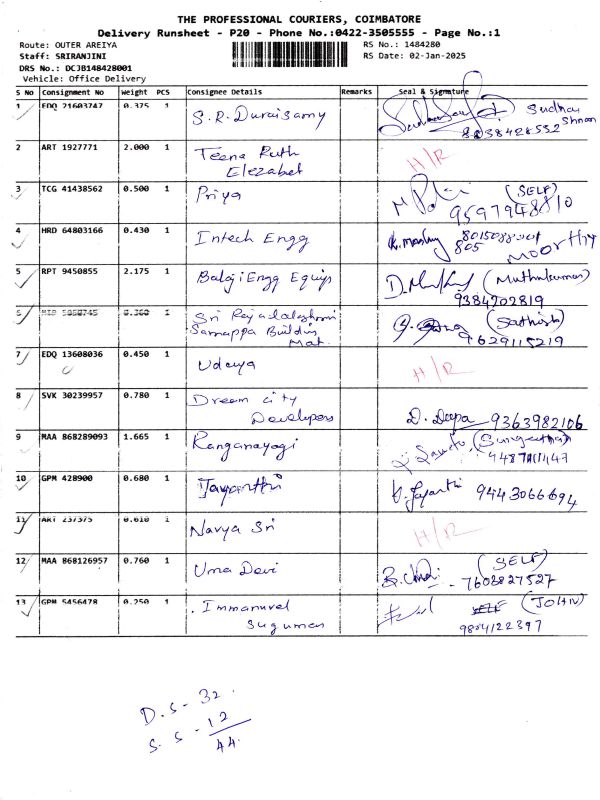 THE PROFESSIONAL COURIERS, COIMBATORE
Delivery Runsheet - P20 - Phone No.:0422-3505555 - Page No.:1
Route: OUTER AREIYA RS No.: 1484280
Staff: SRIRANJINI RS Date: 02-Jan-2025
DRS No.: DCJB148428001
Vehicle: Office Delivery
S No Consignment No Weight PCS Consignee Details Remarks Seal & Signature
1 EDQ 21603747 0.375 1 S.R. Duraisamy
2 ART 1927771 2.000 1 Teena Ruth H/R
Elezabet
3 TCG 41438562 0.500 1 Priya (SELF)
9597948810
4 HRD 64803166 0.430 1 Intech Engg MOORTHY
5 RPT 9450855 2.175 1 Balaji Engg Equips (Muthukumar)
9384702819
6 0.360 1 Sri Rajalakshmi (Sathish)
Samappa Building 9629115219
Mat.
7 EDQ 13608036 0.450 1 Udaya H/R
8 SVK 30239957 0.780 1 Dream city
Developers D. Deepa 9363982106
9 MAA 868289093 1.665 1 Ranganayagi
10 GPM 428900 0.680 1 Jayanthi V. Jayanthi 9443066694
11 ART 237375 0.610 1 Navya Sri H/R
12 MAA 868126957 0.760 1 Uma Devi (SELF)
7603827527
13 GPM 5456478 0.250 1 Immanuvel (JOHN)
Sugumar 9884122397
D.S - 32
S.S - 12
44